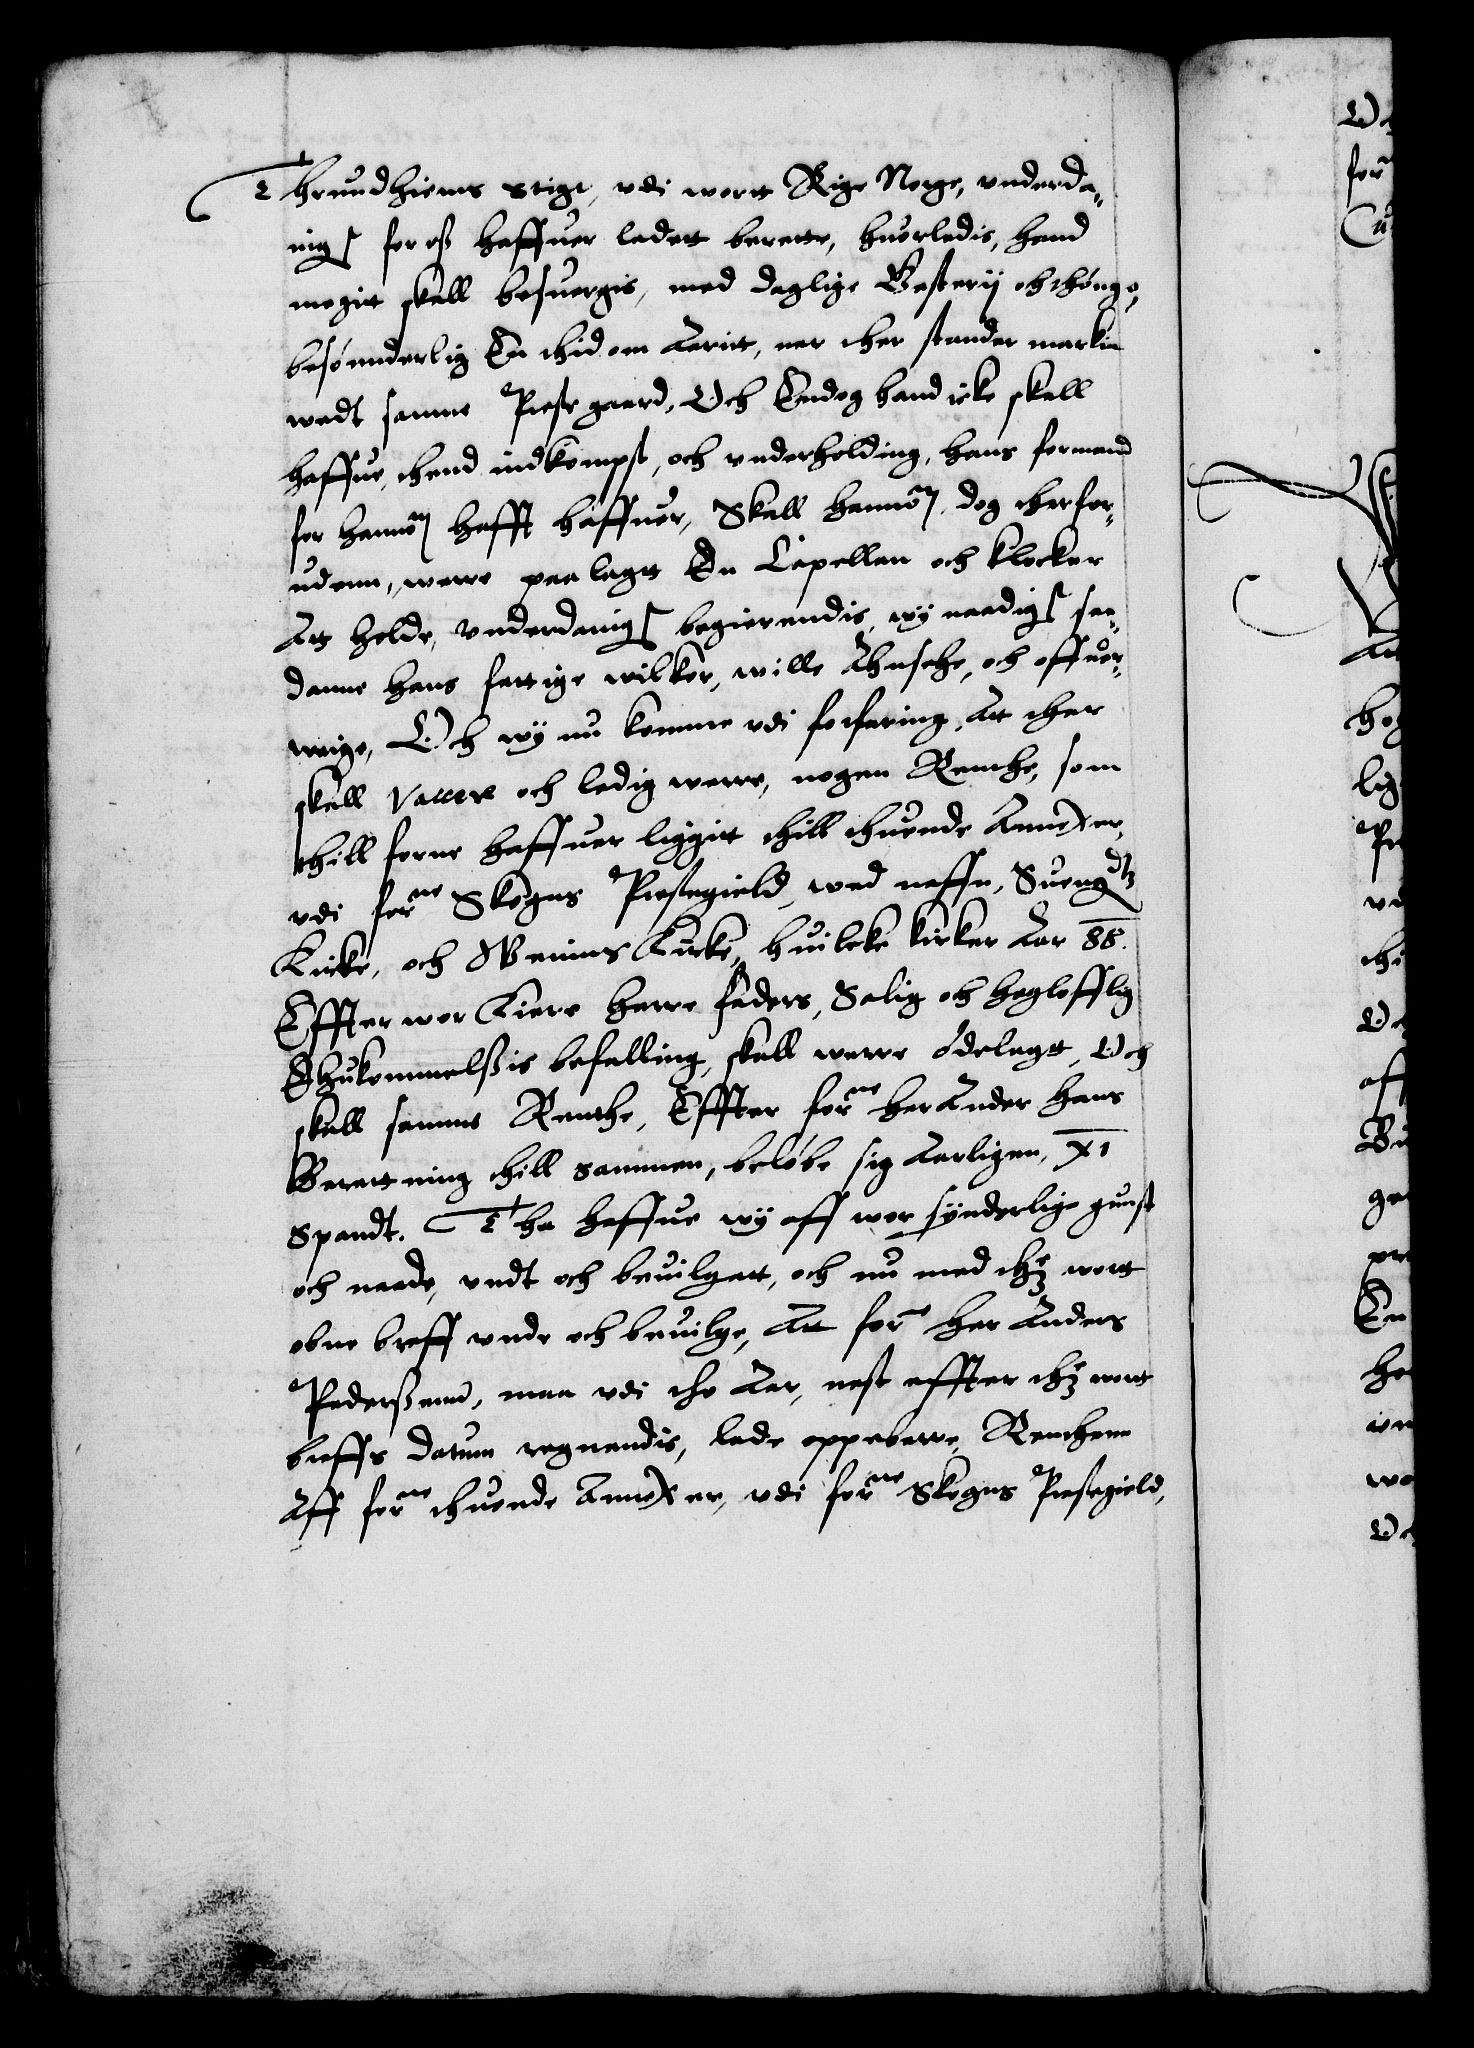 Thrundhiems Stigt, vdi wortt Rige Norge, vnderda-
nigst for oß haffuer ladett berette, huorledis, hand
megitt skall besuergis, med daglige Gesterij och thónge,
besónnderlig En thid om Aaritt, naar ther stander markit
wedt samme Prestegaard, Och Endog hand icke skall
haffue, thend indkompst, och vnderholding, hans formand
for hannom hafft haffuer, Skall hannom dog therfor-
udenn, werre paa lagtt En Capellan och klocker
Att holde, vnderdanigst begierendis, wy naadigst saa-
danne hans fattige wilkor, wille Ahnsehe, och offuer-
weige, Och wÿ nu komme vdi forfaring, Att ther
skall Vacere och ledig werre, nogen Renthe, som
thill forne haffuer liggitt thill thuende Annexer,
vdi forne Skognes Prestegield, wed naffn, Suengdtz
Kircke, och Wenines Kircke, huilcke kircker Aar 88.
Effter wor Kiere herre faders, Salig och hoglofflig
Ihukommelßis befalling, skall werre ódelagtt, Och
skall samme Renthe, Effter forne her Anders hans
Berettning thill sammen, belóbe sig Aarligen, XI
Spandt. Tha haffue wÿ aff wor sÿnderlige gunst
och naade, vndt och beuilgett, och nu med thz wortt
obne breff vnde och beuilge, Att forne her Anders
Pederßenn, maa vdi tho Aar, nest effter thz wortt
breffs datum regnendis, lade oppeberre, Renthenn
Aff forne thuende Annexer, vdi forne Skognes Prestegield,